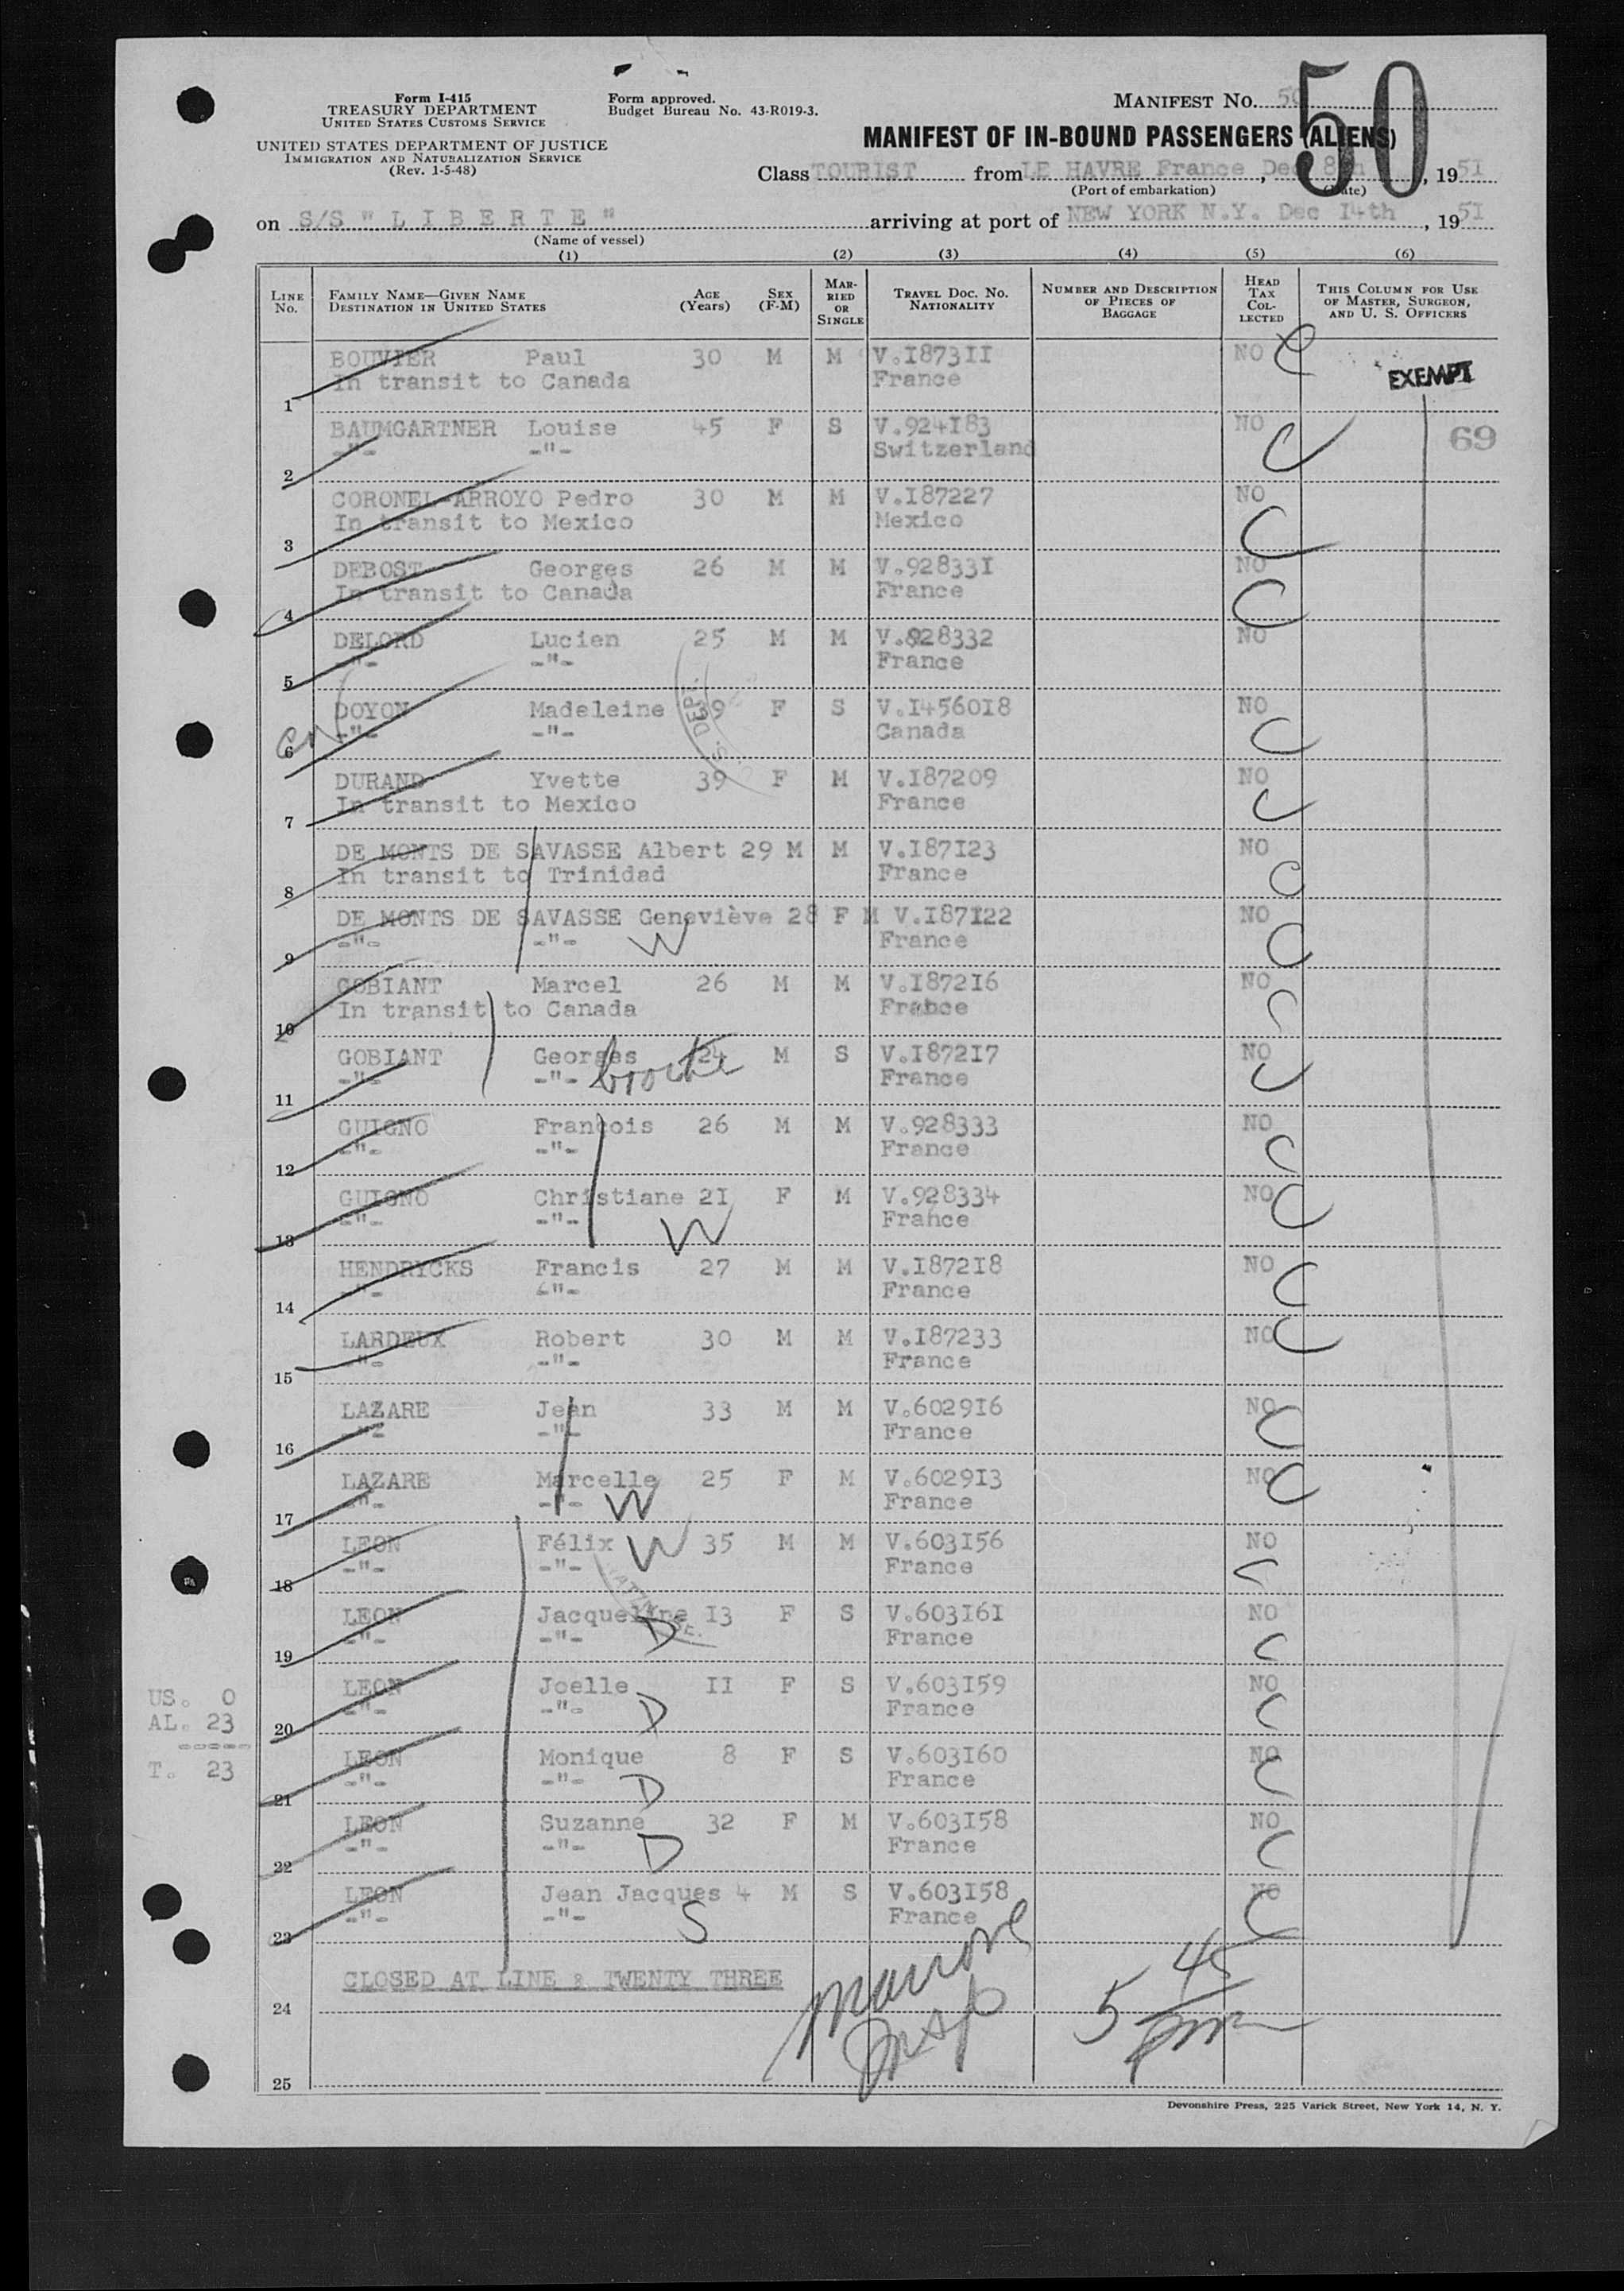 Form I-415
TREASURY DEPARTMENT
UNITED STATES CUSTOMS SERVICE
UNITED STATES DEPARTMENT OF JUSTICE
IMMIGRATION AND NATURALIZATION SERVICE
(Rev. 1-5-48)
Form approved.
Budget Bureau No. 43-R019-3.
MANIFEST No. 50
50
MANIFEST OF IN-BOUND PASSENGERS (ALIENS)
Class TOURIST from LE HAVRE France Dec 8th, 1951
(Port of embarkation) (Date)
on S/S " L I B E R T E " arriving at port of NEW YORK N.Y. Dec I4th, 1951
(Name of vessel)
(1) (2) (3) (4) (5) (6)
LINE No. FAMILY NAME—GIVEN NAME DESTINATION IN UNITED STATES AGE (Years) SEX (F-M) MARRIED OR SINGLE TRAVEL DOC. No. NATIONALITY NUMBER AND DESCRIPTION OF PIECES OF BAGGAGE HEAD TAX COLLECTED THIS COLUMN FOR USE OF MASTER, SURGEON, AND U. S. OFFICERS
BOUVIER Paul 30 M M V.I873II NO C EXEMPT
In transit to Canada France
1
BAUMGARTNER Louise 45 F S V.924I83 NO C 69
-"- -"- Switzerland
2
CORONEL ARROYO Pedro 30 M M V.I87227 NO C
In transit to Mexico Mexico
3
DEBOST Georges 26 M M V.92833I NO C
In transit to Canada France
4
DELORD Lucien 25 M M V.928332 NO
-"- -"- France
5
DOYON Madeleine 39 F S V.I4560I8 NO C
-"- -"- Canada
6
DURAND Yvette 39 F M V.I87209 NO C
In transit to Mexico France
7
DE MONTS DE SAVASSE Albert 29 M M V.I87I23 NO C
In transit to Trinidad France
8
DE MONTS DE SAVASSE Geneviève 28 F M V.I87I22 NO C
-"- -"- W France
9
GOBIANT Marcel 26 M M V.I872I6 NO C
In transit to Canada France
10
GOBIANT Georges 24 M S V.I872I7 NO C
-"- -"- France
11
GUIGNO François 26 M M V.928333 NO C
-"- -"- France
12
GUIGNO Christiane 2I F M V.928334 NO C
-"- -"- W France
13
HENDRYCKS Francis 27 M M V.I872I8 NO C
-"- -"- France
14
LARDEUX Robert 30 M M V.I87233 NO C
-"- -"- France
15
LAZARE Jean 33 M M V.6029I6 NO C
-"- -"- France
16
LAZARE Marcelle 25 F M V.6029I3 NO C
-"- -"- W France
17
LEON Félix W 35 M M V.603I56 NO C
-"- -"- France
18
LEON Jacqueline I3 F S V.603I6I NO C
-"- -"- D France
19
LEON Joelle II F S V.603I59 NO C
-"- -"- D France
20
US. 0
AL. 23
-----
T. 23
LEON Monique 8 F S V.603I60 NO C
-"- -"- D France
21
LEON Suzanne 32 F M V.603I58 NO C
-"- -"- D France
22
LEON Jean Jacques 4 M S V.603I58 NO C
-"- -"- S France
23
CLOSED AT LINE : TWENTY THREE
24
Insp
5 45 pm
25
Devonshire Press, 225 Varick Street, New York 14, N. Y.